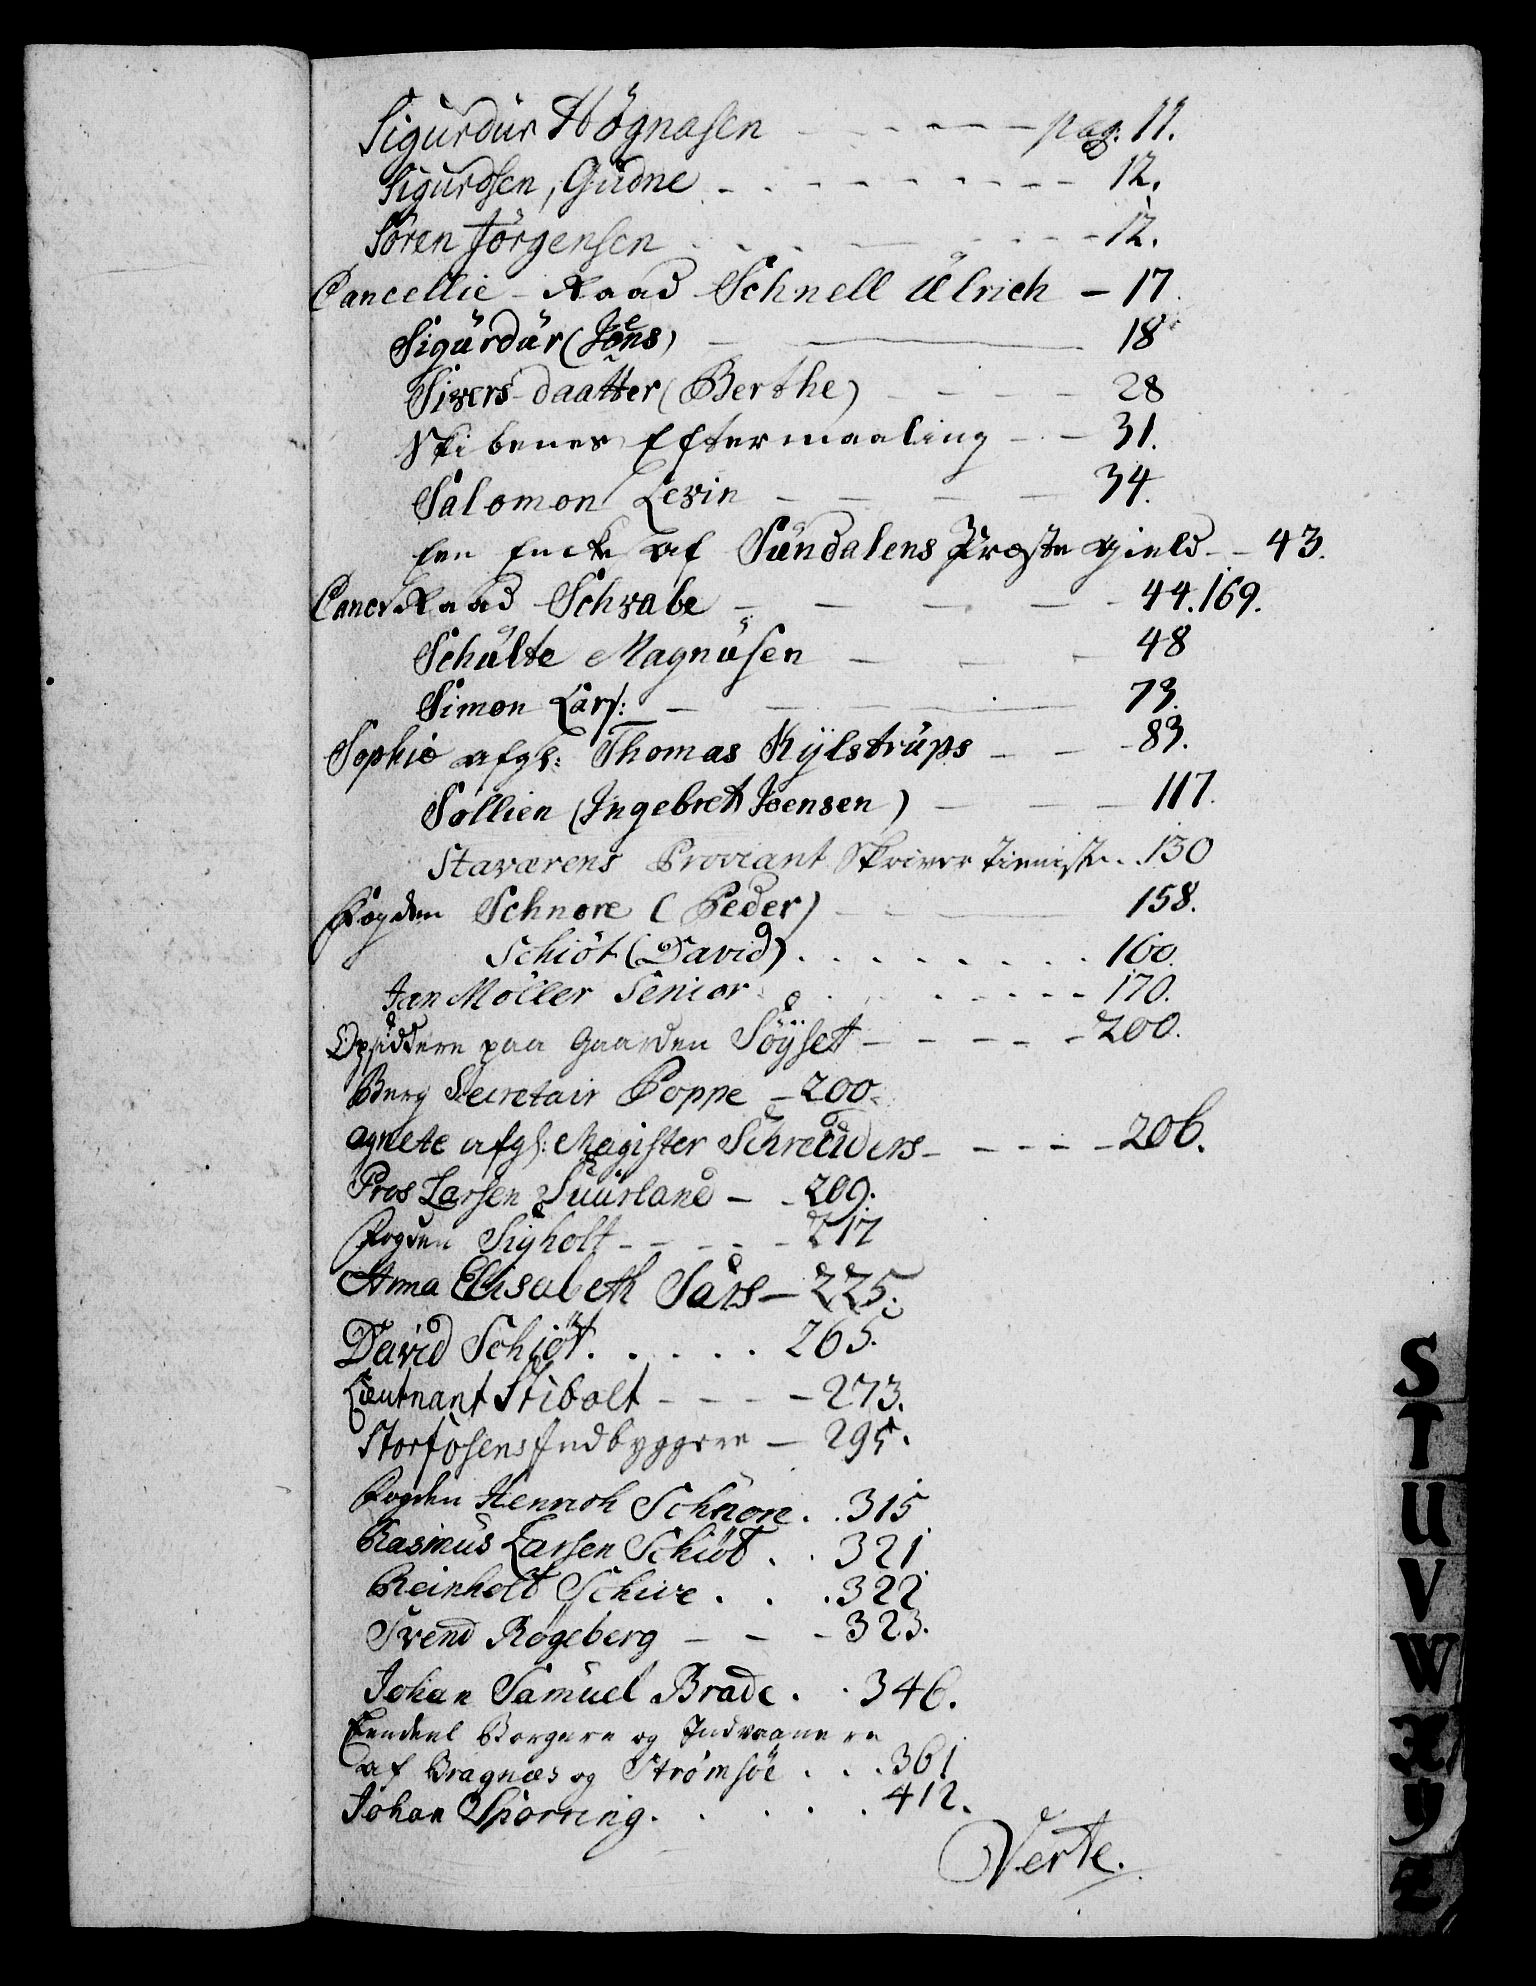 Sigurdur Høgnasen - - - - - pag: 11.
Sigurdsen, Gudne - - - - - - - - 12.
Søren Jörgensen - - - - - - 12.
Cancellie-Raad Schnell Ulrich - 17.
Sigurdur (Jons) - - 18
Sivers-daatter (Berthe) - - - 28
Skibenes Eftermaaling - - 31.
Salomon Levin - - - - 34.
Een Encke af Sundalens Præste gield - - 43.
Canc: Raad Schwabe - - - - - 44.169.
Schulte Magnusen - - - 48
Simon Lars: - - - - 73.
Sophie afgl: Thomas Kylstrups - - - 83.
Sollien (Ingebret Joensen) - - - 117.
Staværens Proviant Skriver Tieniste . . 130
Fogden Schnore (Peder) - - - 158.
Schiöt (David) . . . . . . . . 160.
Jan Möller Senior . . - - - - - 170.
Opsiddere paa Gaarden Söyset - - - - - 200.
Berg Secretair Poppe - 200.
Agnete afgl: Magister Schreuders - - - - - 206.
Pros Larsen Suurland - - 209.
Fogden Sigholt - - - - - 217
Anna Elisabeth Sars - 225.
David Schiöt . . . . . 265.
Lieutnant Stibolt - - - - 273.
Storfosens Indbyggere - 295.
Fogden Henrich Schnore . . 315
Rasmus Larsen Schiöt . . 321
Reinholt Schive . . . 322
Svend Rögeberg - - - 323.
Johan Samuel Brade . . 346.
Eendeel Borgere og Indvaanere
af Bragnæs og Strømsöe . . . 361
Johan Sporring . . . . . 412.
Verte.
S
T
U
V
W
X
Y
Z